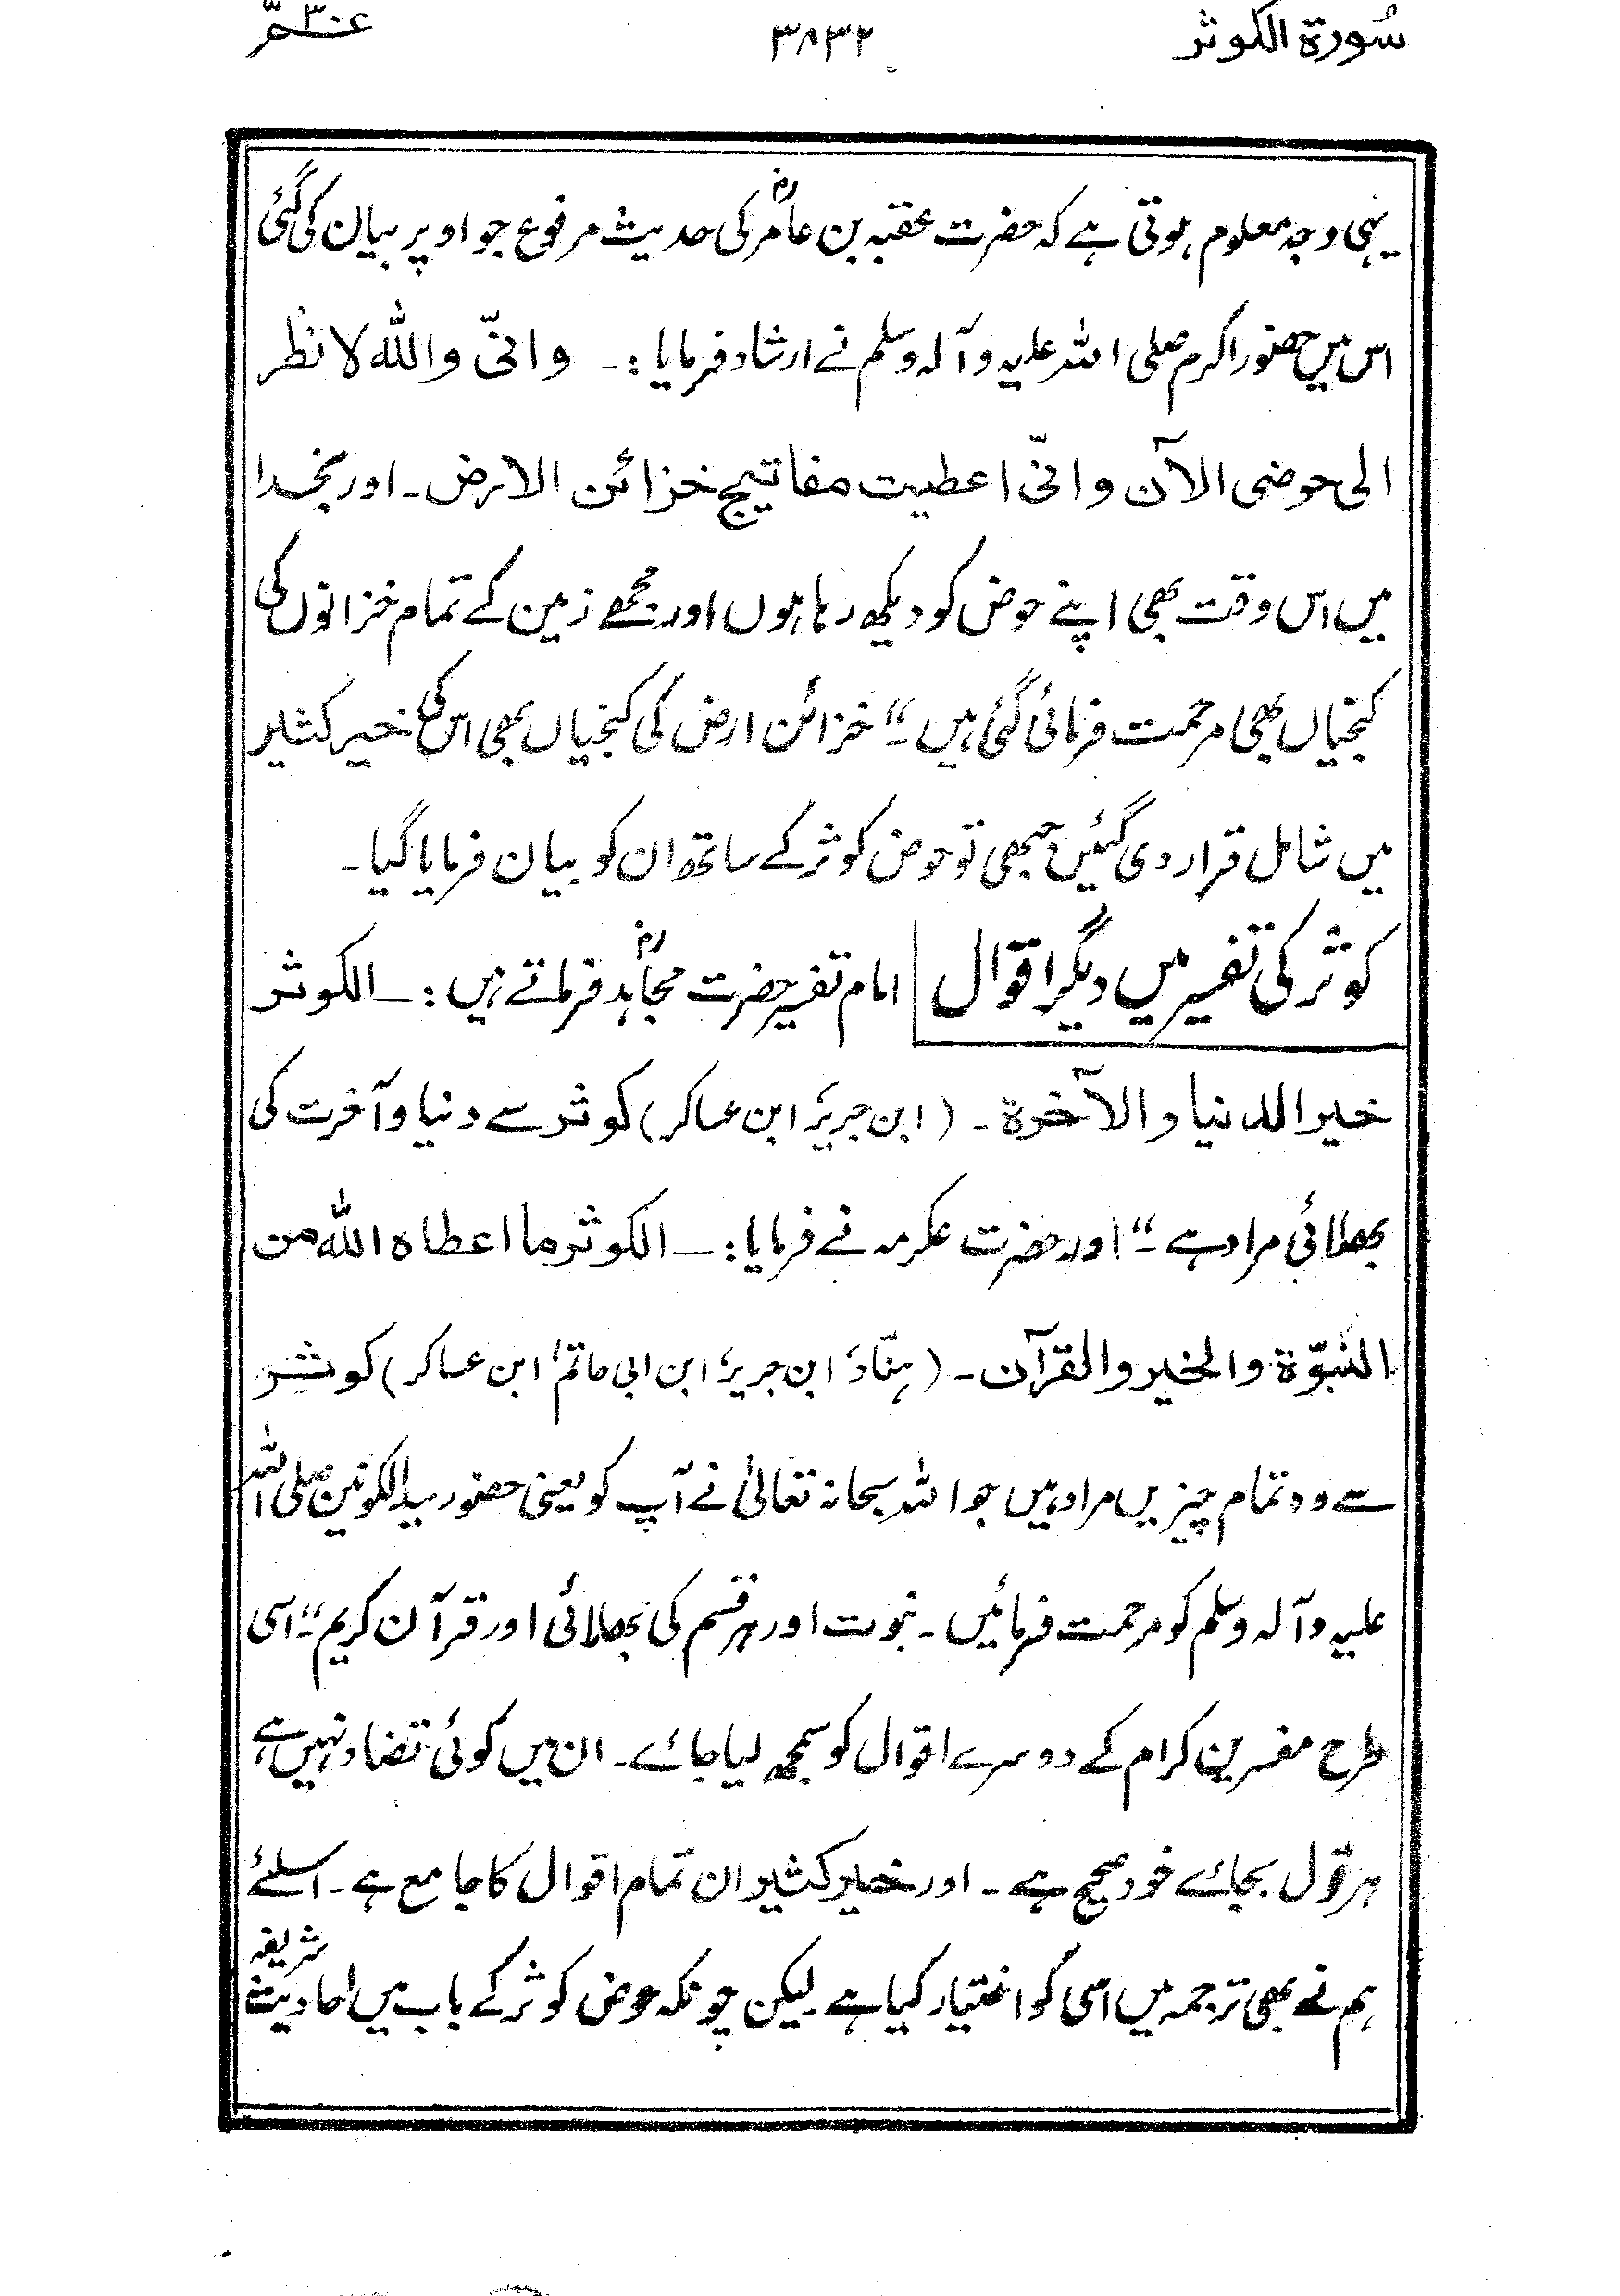 سُورة الكوثر ۳۸۳۲ عمّ ۳۰
یہی وجہ معلوم ہوتی ہے کہ حضرت عقبہ بن عامرؓ کی حدیث مرفوع جو اوپر بیان کی گئی
اس میں حضور اکرم صلی اللہ علیہ وآلہ وسلم نے ارشاد فرمایا:ـ وانّی واللّٰہ لانظر
الی حوضی الآن وانّی اعطیت مفاتیح خزائن الارض۔ اور بخدا
میں اس وقت بھی اپنے حوض کو دیکھ رہا ہوں اور مجھے زمین کے تمام خزانوں کی
کنجیاں بھی مرحمت فرمائی گئی ہیں۔“ خزائن ارض کی کنجیاں بھی اس کی خیر کثیر
میں شامل قرار دی گئیں جبھی تو حوض کوثر کے ساتھ ان کو بیان فرمایا گیا۔
کوثر کی تفسیر میں دیگر اقوال امام تفسیر حضرت مجاہدؒ فرماتے ہیں:ـ الکوثر
خیر الدنیا والآخرة۔ (ابن جریر، ابن عساکر) کوثر سے دنیا و آخرت کی
بھلائی مراد ہے۔“ اور حضرت عکرمہ نے فرمایا:ـ الکوثر ما اعطاہ اللّٰہ من
النبوّة والخیر والقرآن۔ (ہناد، ابن جریر، ابن ابی حاتم، ابن عساکر) کوثر
سے وہ تمام چیزیں مراد ہیں جو اللہ سبحانہ تعالیٰ نے آپ کو یعنی حضور سید الکونین صلی اللہ
علیہ وآلہ وسلم کو مرحمت فرمائیں۔ نبوت اور ہر قسم کی بھلائی اور قرآن کریم“۔ اسی
طرح مفسرین کرام کے دوسرے اقوال کو سمجھ لیا جائے۔ ان میں کوئی تضاد نہیں ہے
ہر قول بجائے خود صحیح ہے۔ اور خیر کثیر ان تمام اقوال کا جامع ہے۔ اسلئے
ہم نے بھی ترجمہ میں اسی کو اختیار کیا ہے۔ لیکن چونکہ حوض کوثر کے باب میں احادیث شریفہ